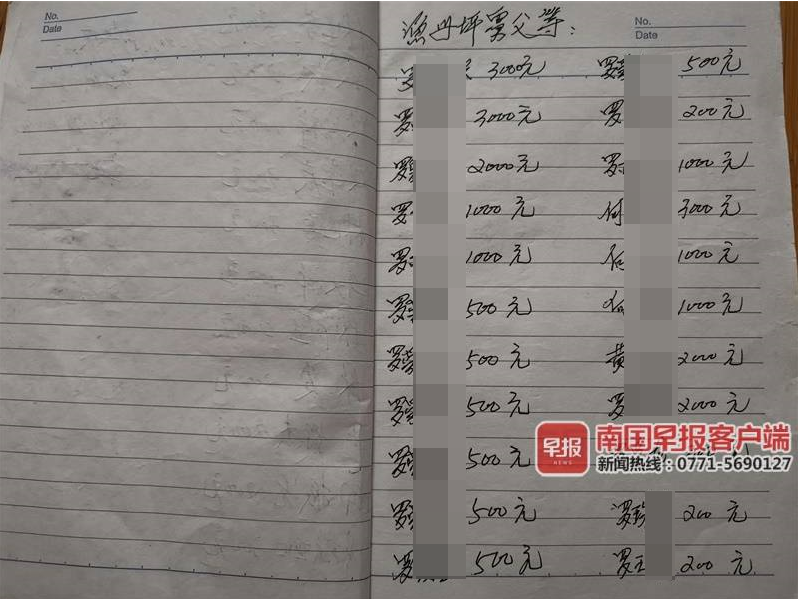 No.
Date
No.
Date
渔丹坪罗父等:
罗 3000元 罗 500元
罗 3000元 罗 200元
罗 2000元 罗 1000元
罗 1000元 何 3000元
罗 1000元 1000元
罗 500元 1000元
罗 500元 黄 2000元
罗 500元 罗 2000元
罗 500元
罗 500元 罗 200元
罗 500元 罗 200元
早报
NEWS
南国早报客户端
新闻热线:0771-5690127